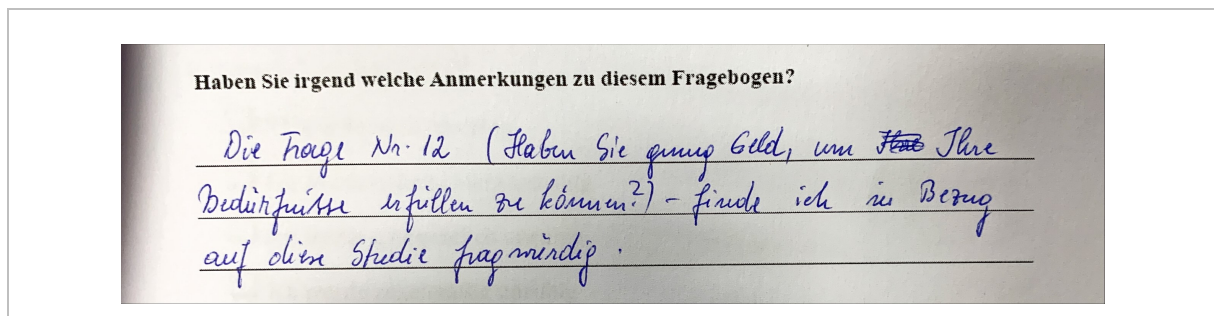 Haben Sie irgend welche Anmerkungen zu diesem Fragebogen?
Die Frage Nr. 12 (Haben Sie genug Geld, um Ihre
Bedürfnisse erfüllen zu können?) - finde ich in Bezug
auf diese Studie fragwürdig.